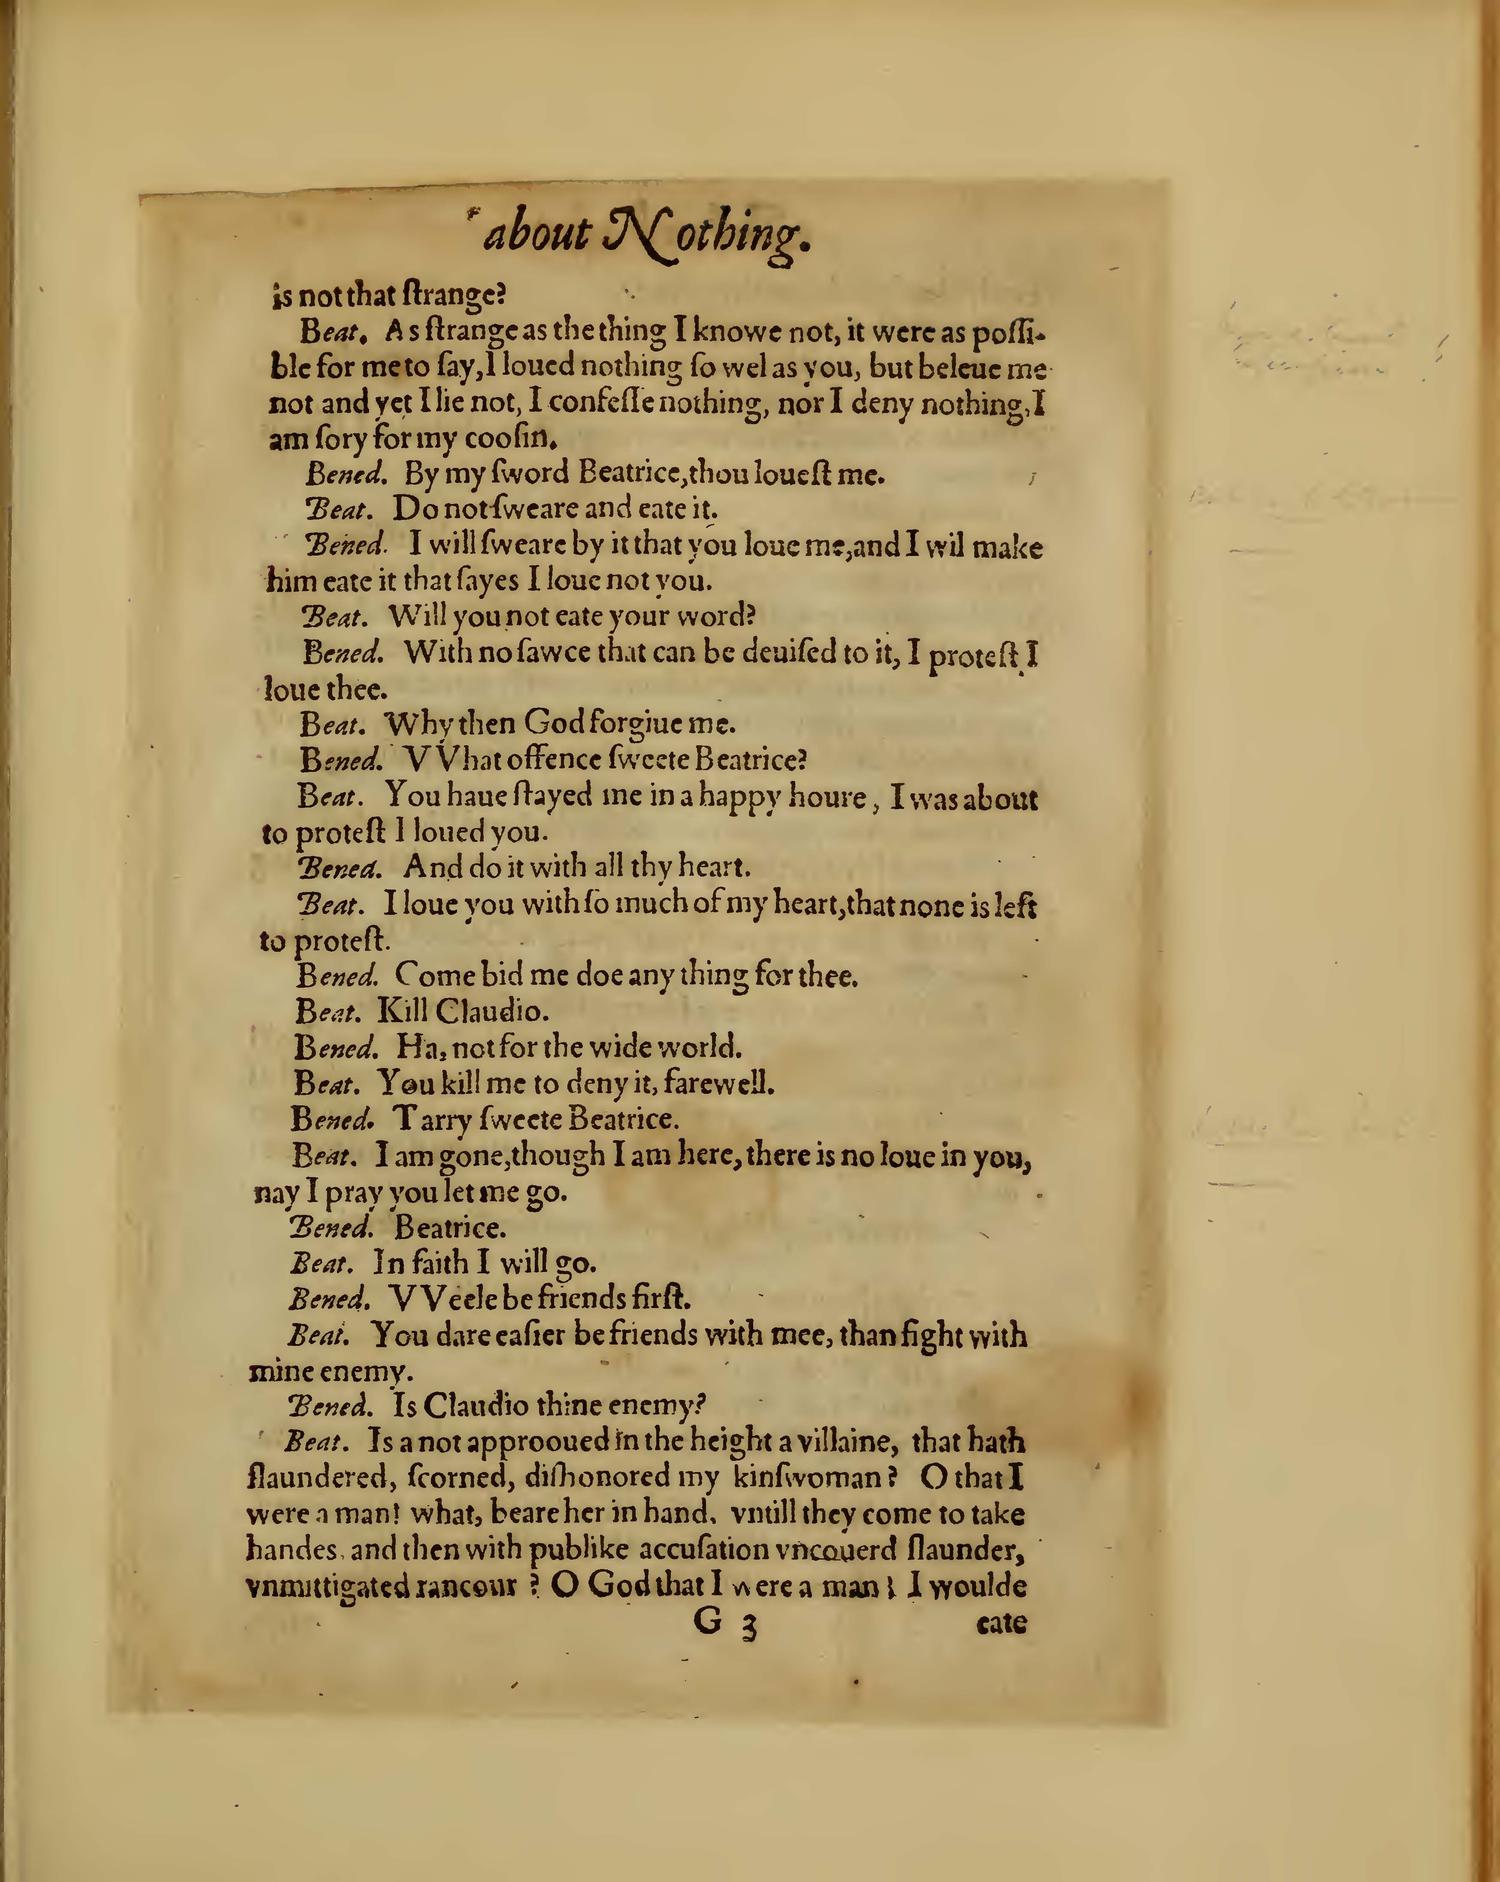 about Nothing.
is not that ſtrange?
Beat. As ſtrange as the thing I knowe not, it were as poſſi-
ble for me to ſay, I loued nothing ſo wel as you, but beleue me
not and yet I lie not, I confeſſe nothing, nor I deny nothing, I
am ſory for my cooſin.
Bened. By my ſword Beatrice, thou loueſt me.
Beat. Do not ſweare and eate it.
Bened. I will ſweare by it that you loue me, and I wil make
him eate it that ſayes I loue not you.
Beat. Will you not eate your word?
Bened. With no ſawce that can be deuiſed to it, I proteſt I
loue thee.
Beat. Why then God forgiue me.
Bened. VVhat offence ſweete Beatrice?
Beat. You haue ſtayed me in a happy houre, I was about
to proteſt I loued you.
Bened. And do it with all thy heart.
Beat. I loue you with ſo much of my heart, that none is left
to proteſt.
Bened. Come bid me doe any thing for thee.
Beat. Kill Claudio.
Bened. Ha, not for the wide world.
Beat. You kill me to deny it, farewell.
Bened. Tarry ſweete Beatrice.
Beat. I am gone, though I am here, there is no loue in you,
nay I pray you let me go.
Bened. Beatrice.
Beat. In faith I will go.
Bened. VVeele be friends firſt.
Beat. You dare eaſier be friends with mee, than fight with
mine enemy.
Bened. Is Claudio thine enemy?
Beat. Is a not approoued in the height a villaine, that hath
ſlaundered, ſcorned, diſhonored my kinſwoman? O that I
were a man! what, beare her in hand, vntill they come to take
handes, and then with publike accuſation vncouerd ſlaunder,
vnmittigated rancour? O God that I were a man! I woulde
G 3 eate